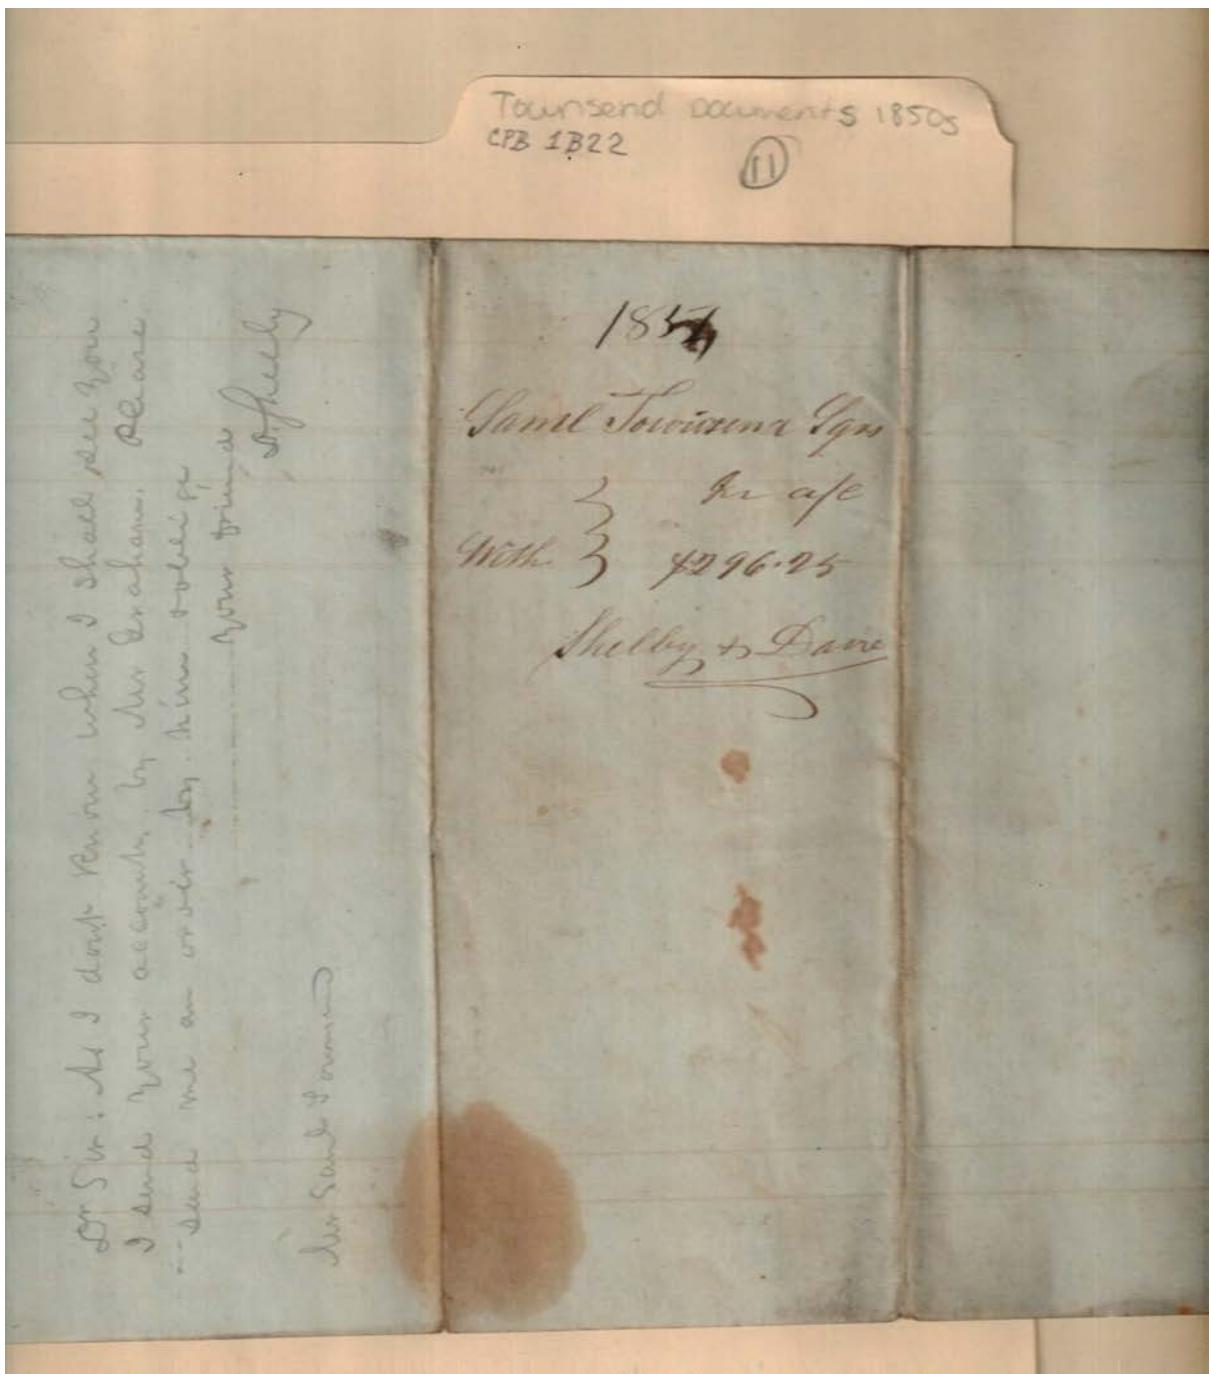 Townsend Documents 1850s
CPB 1B22
11
185
Saml Townsend
In a/c
With $296.25
Shelby & Davie
Dr Sir: As I dont know when I shall see you
I send your accounts, by Mr Graham. Please
send me an order by him & oblige
your friend
Shelby
Mr Saml Townsend